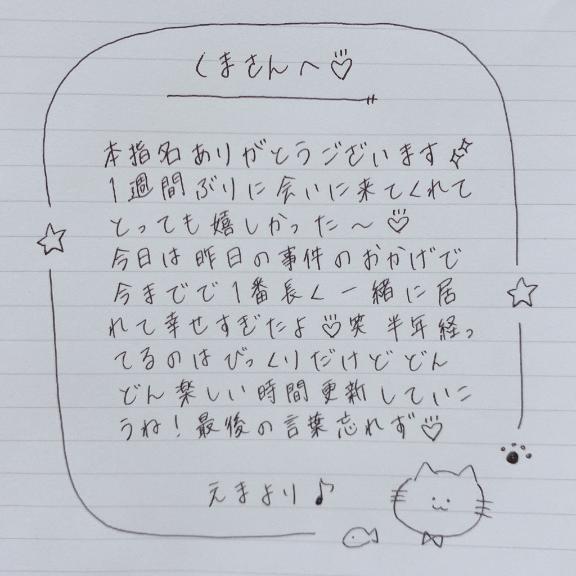 くまさんへ♡
本指名ありがとうございます
1週間ぶりに会いに来てくれて
とっても嬉しかった〜♡
今日は昨日の事件のおかげで
今までで1番長く一緒に居
れて幸せすぎたよ♡笑 半年経っ
てるのはびっくりだけどどん
どん楽しい時間更新していこ
うね!最後の言葉忘れず♡
えまより♪